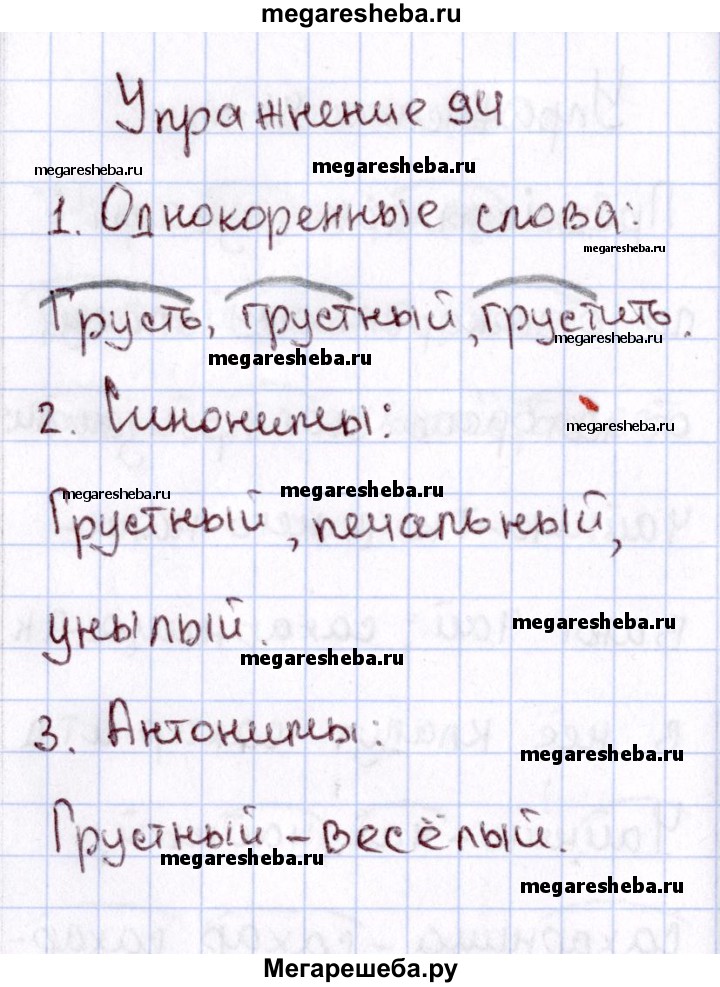 megaresheba.ru
Упражнение 94
megaresheba.ru
megaresheba.ru
1. Однокоренные слова:
megaresheba.ru
Грусть, грустный, грустить.
megaresheba.ru
megaresheba.ru
2. Синонимы:
megaresheba.ru
megaresheba.ru
megaresheba.ru
Грустный, печальный,
megaresheba.ru
унылый.
megaresheba.ru
3. Антонимы:
megaresheba.ru
Грустный - весёлый.
megaresheba.ru
megaresheba.ru
Мегарешеба.ру